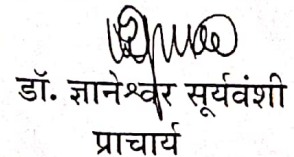 डॉ. ज्ञानेश्वर सूर्यवंशी
प्राचार्य